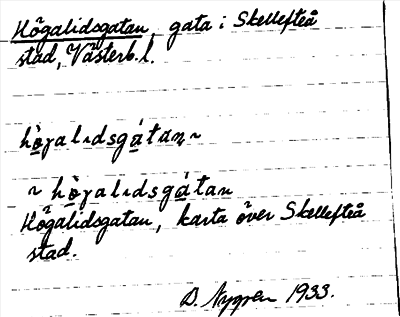 Högalidsgatan, gata i Skellefteå
stad, Västerb. l.
hò̱galıdsgá̱tan ~
~ hò̱galıdsgá̱tan
Högalidsgatan, karta över Skellefteå
stad.
D. Nygren 1933.